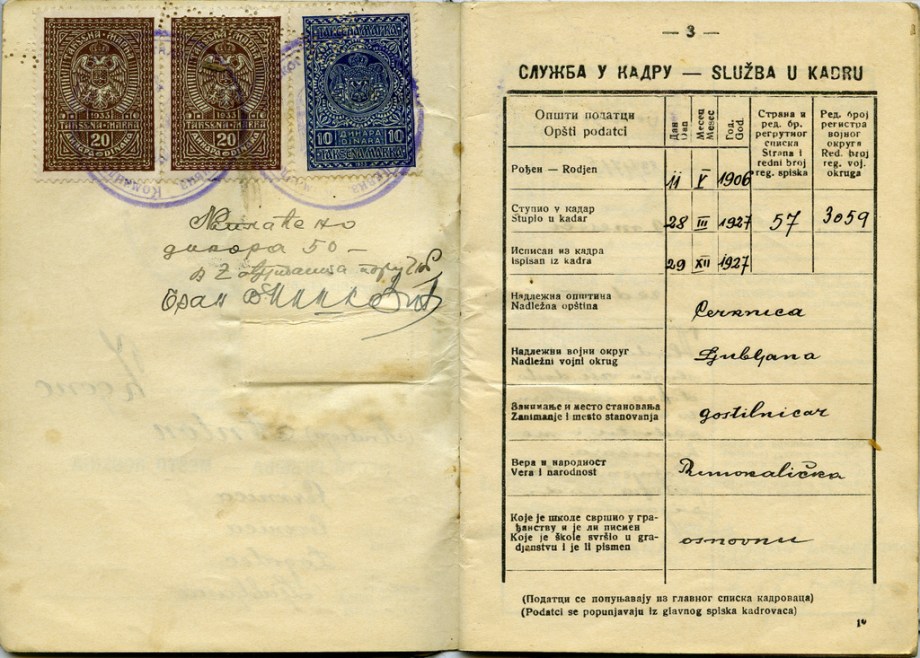 ТАКСЕНА МАРКА
TAKSENA MARKA
20 20
ДИНАРА DINARA
ТАКСЕНА МАРКА
TAKSENA MARKA
20 20
ДИНАРА DINARA
ТАКСЕНА МАРКА
10 ДИНАРА 10
DINARA
TAKSENA MARKA
Наплаћено
динара 50 —
— 3 —
СЛУЖБА У КАДРУ — SLUŽBA U KADRU
Општи податци
Opšti podatci
Дан
Dan
Месец
Mesec
Год.
God.
Страна и
ред. бр.
регрутног
списка
Strana i
redni broj
reg. spiska
Ред. број
регистра
војног
округа
Red. broj
reg. voj.
okruga
Рођен — Rodjen
11 V 1906
Ступио у кадар
Stupio u kadar
28 III 1927 57 3059
Исписан из кадра
Ispisan iz kadra
29 XII 1927
Надлежна општина
Nadležna opština
Cerknica
Надлежни војни округ
Nadležni vojni okrug
Ljubljana
Занимање и место становања
Zanimanje i mesto stanovanja
gostilničar
Вера и народност
Vera i narodnost
Rimokalička
Које је школе свршио у гра-
ђанству и је ли писмен
Koje je škole svršio u gra-
djanstvu i je li pismen
osnovnu
(Податци се попуњавају из главног списка кадроваца)
(Podatci se popunjavaju iz glavnog spiska kadrovaca)
1*